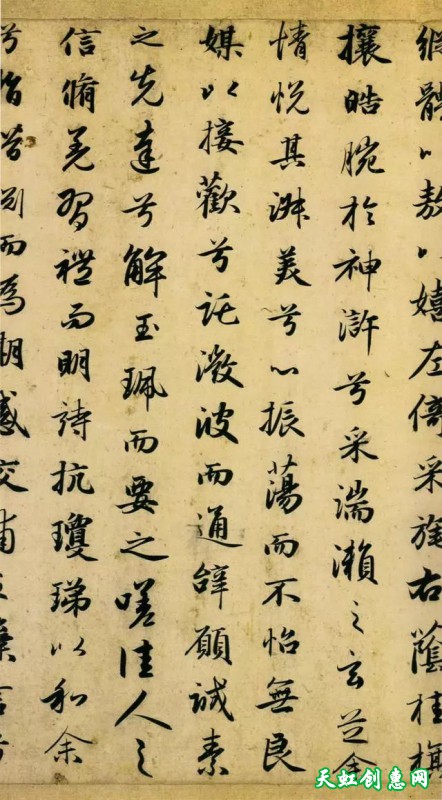 縱體以敖以嬉左倚采旄右蔭桂旗
攘皓腕於神滸兮采湍瀨之玄芝余
情悅其淑美兮心振蕩而不怡無良
媒以接歡兮託微波而通辭願誠素
之先達兮解玉珮而要之嗟佳人之
信脩羌習禮而明詩抗瓊珶以和余
兮指而爲期感交甫之棄言兮
天虹创惠网